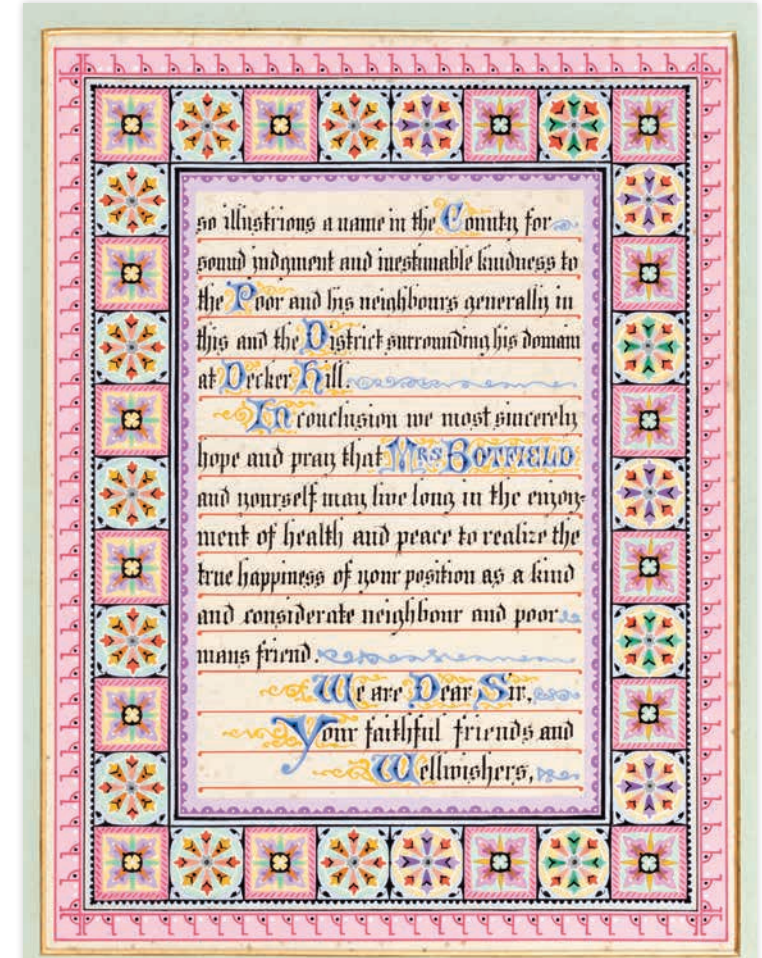 so illustrious a name in the County for
sound judgment and inestimable kindness to
the Poor and his neighbours generally in
this and the District surrounding his domain
at Decker Hill.
In conclusion we most sincerely
hope and pray that MRS BOTFIELD
and yourself may live long in the enjoy-
ment of health and peace to realize the
true happiness of your position as a kind
and considerate neighbour and poor
mans friend.
We are Dear Sir,
Your faithful friends and
Wellwishers,